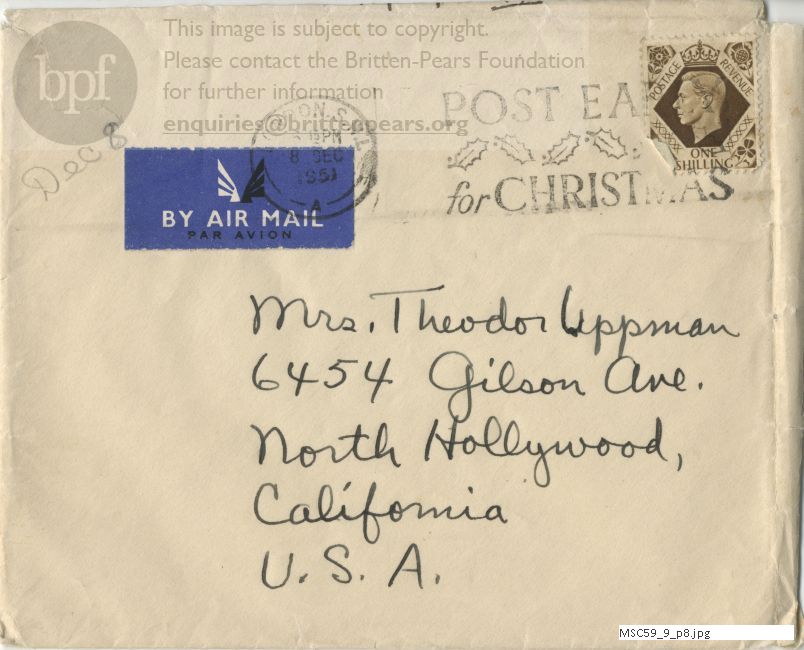 This image is subject to copyright.
Please contact the Britten-Pears Foundation
for further information
enquiries@brittenpears.org
bpf
Dec 8
PM
8 DEC
1951
A
POST EA
for CHRISTMAS
POSTAGE REVENUE
ONE
SHILLING
BY AIR MAIL
PAR AVION
Mrs. Theodor Uppman
6454 Gilson Ave.
North Hollywood,
California
U. S. A.
MSC59_9_p8.jpg